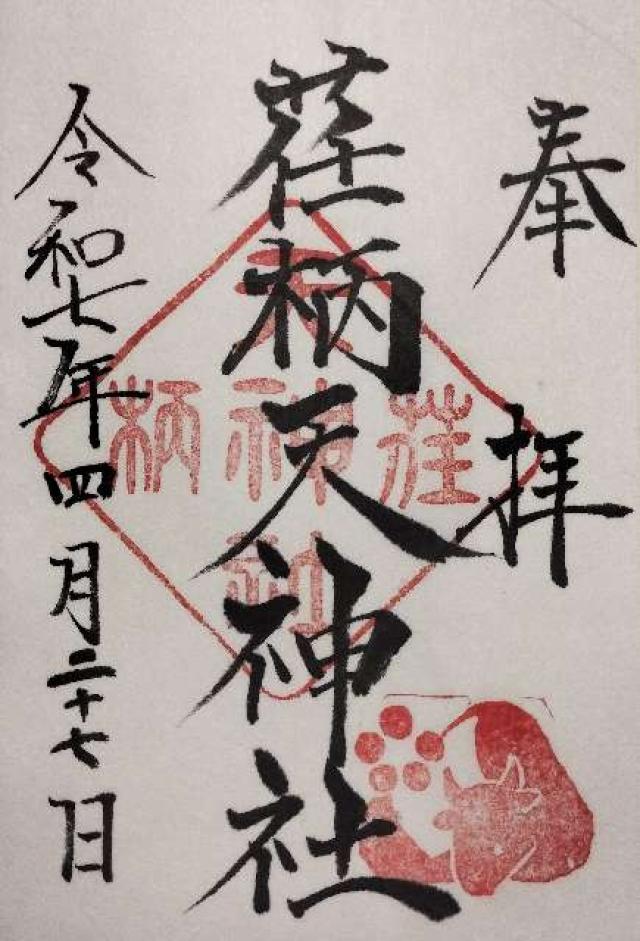 奉拝
荏柄天神社
荏柄天神社
令和七年四月二十七日